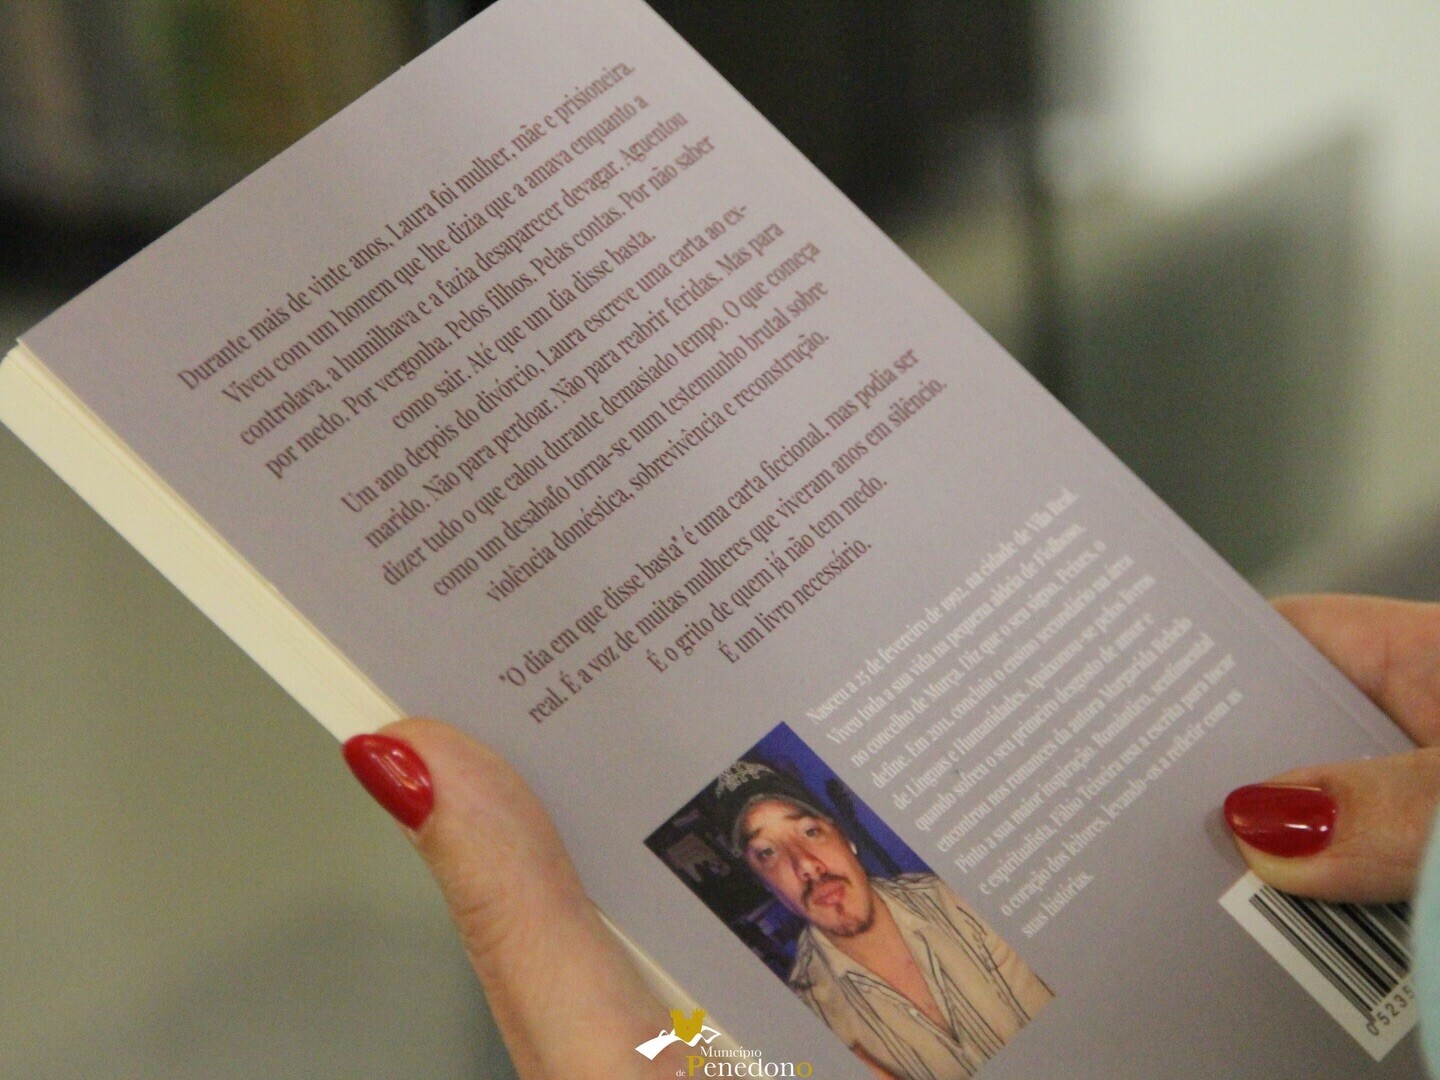 Durante mais de vinte anos, Laura foi mulher, mãe e prisioneira.
Viveu com um homem que lhe dizia que a amava enquanto a
controlava, a humilhava e a fazia desaparecer devagar. Aguentou
por medo. Por vergonha. Pelos filhos. Pelas contas. Por não saber
como sair. Até que um dia disse basta.
Um ano depois do divórcio, Laura escreve uma carta ao ex-
marido. Não para perdoar. Não para reabrir feridas. Mas para
dizer tudo o que calou durante demasiado tempo. O que começa
como um desabafo torna-se num testemunho brutal sobre
violência doméstica, sobrevivência e reconstrução.
"O dia em que disse basta" é uma carta ficcional, mas podia ser
real. É a voz de muitas mulheres que viveram anos em silêncio.
É o grito de quem já não tem medo.
É um livro necessário.
Nasceu a 25 de fevereiro de 1992, na cidade de Vila Real.
Viveu toda a sua vida na pequena aldeia de Fiolhoso,
no concelho de Murça. Diz que o seu signo, Peixes, o
define. Em 2011, concluiu o ensino secundário na área
de Línguas e Humanidades. Apaixonou-se pelos livros
quando sofreu o seu primeiro desgosto de amor e
encontrou nos romances da autora Margarida Rebelo
Pinto a sua maior inspiração. Romântico, sentimental
e espiritualista, Fábio Teixeira usa a escrita para tocar
o coração dos leitores, levando-os a refletir com as
suas histórias.
0 5235
Município
de Penedono